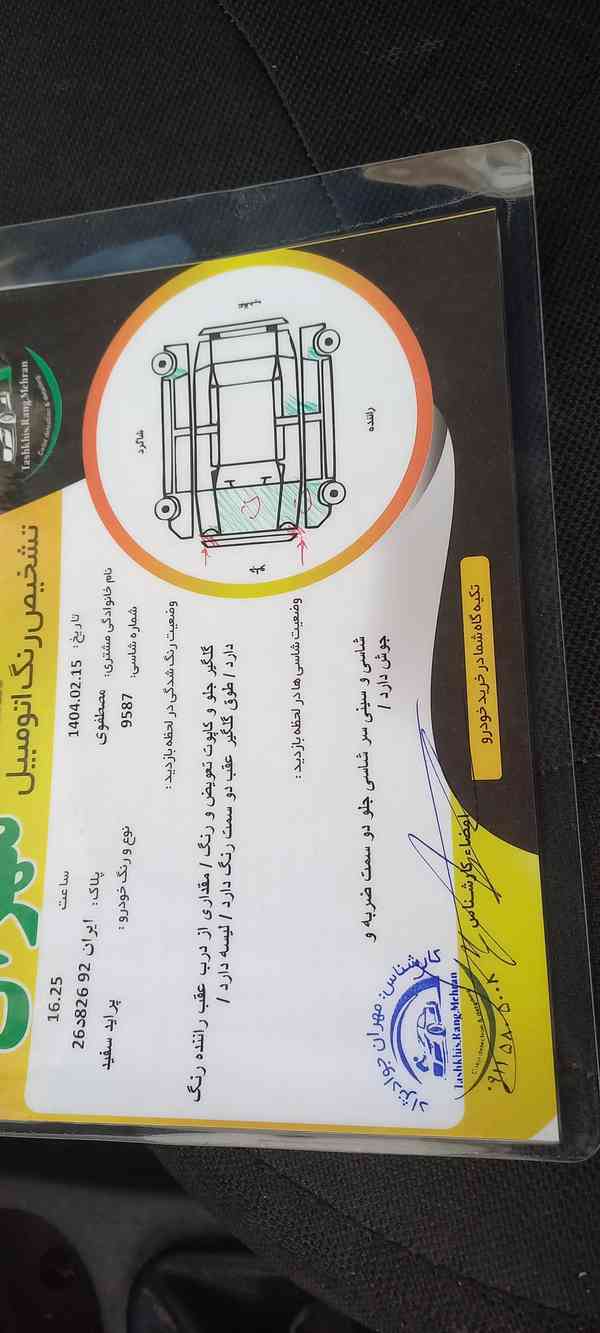 تشخیص رنگ اتومبیل
Tashkhis.Rang.Mehran
Color detection &
تاریخ: 1404.02.15
ساعت 16.25
نام خانوادگی مشتری: مصطفوی
پلاک: ایران 92 826د26
شماره شاسی: 9587
نوع و رنگ خودرو: پراید سفید
وضعیت رنگ شدگی در لحظه بازدید:
گلگیر جلو و کاپوت تعویض و رنگ / مقداری از درب عقب راننده رنگ
دارد / طوق گلگیر عقب دو سمت رنگ دارد / لیسه دارد /
وضعیت شاسی ها در لحظه بازدید:
شاسی و سینی سر شاسی جلو دو سمت ضربه و
جوش دارد /
شاگرد
عقب
جلو
راننده
امضاء کارشناس
کارشناس: مهران جوادنژاد
Tashkhis.Rang.Mehran
Color detection &
تکیه گاه شما در خرید خودرو